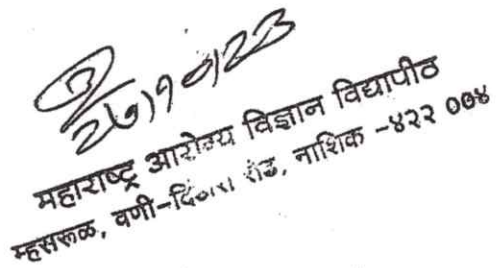 २७/१०/२३
महाराष्ट्र आरोग्य विज्ञान विद्यापीठ
म्हसरूळ, वणी-दिंडोरी रोड, नाशिक -४२२ ००४